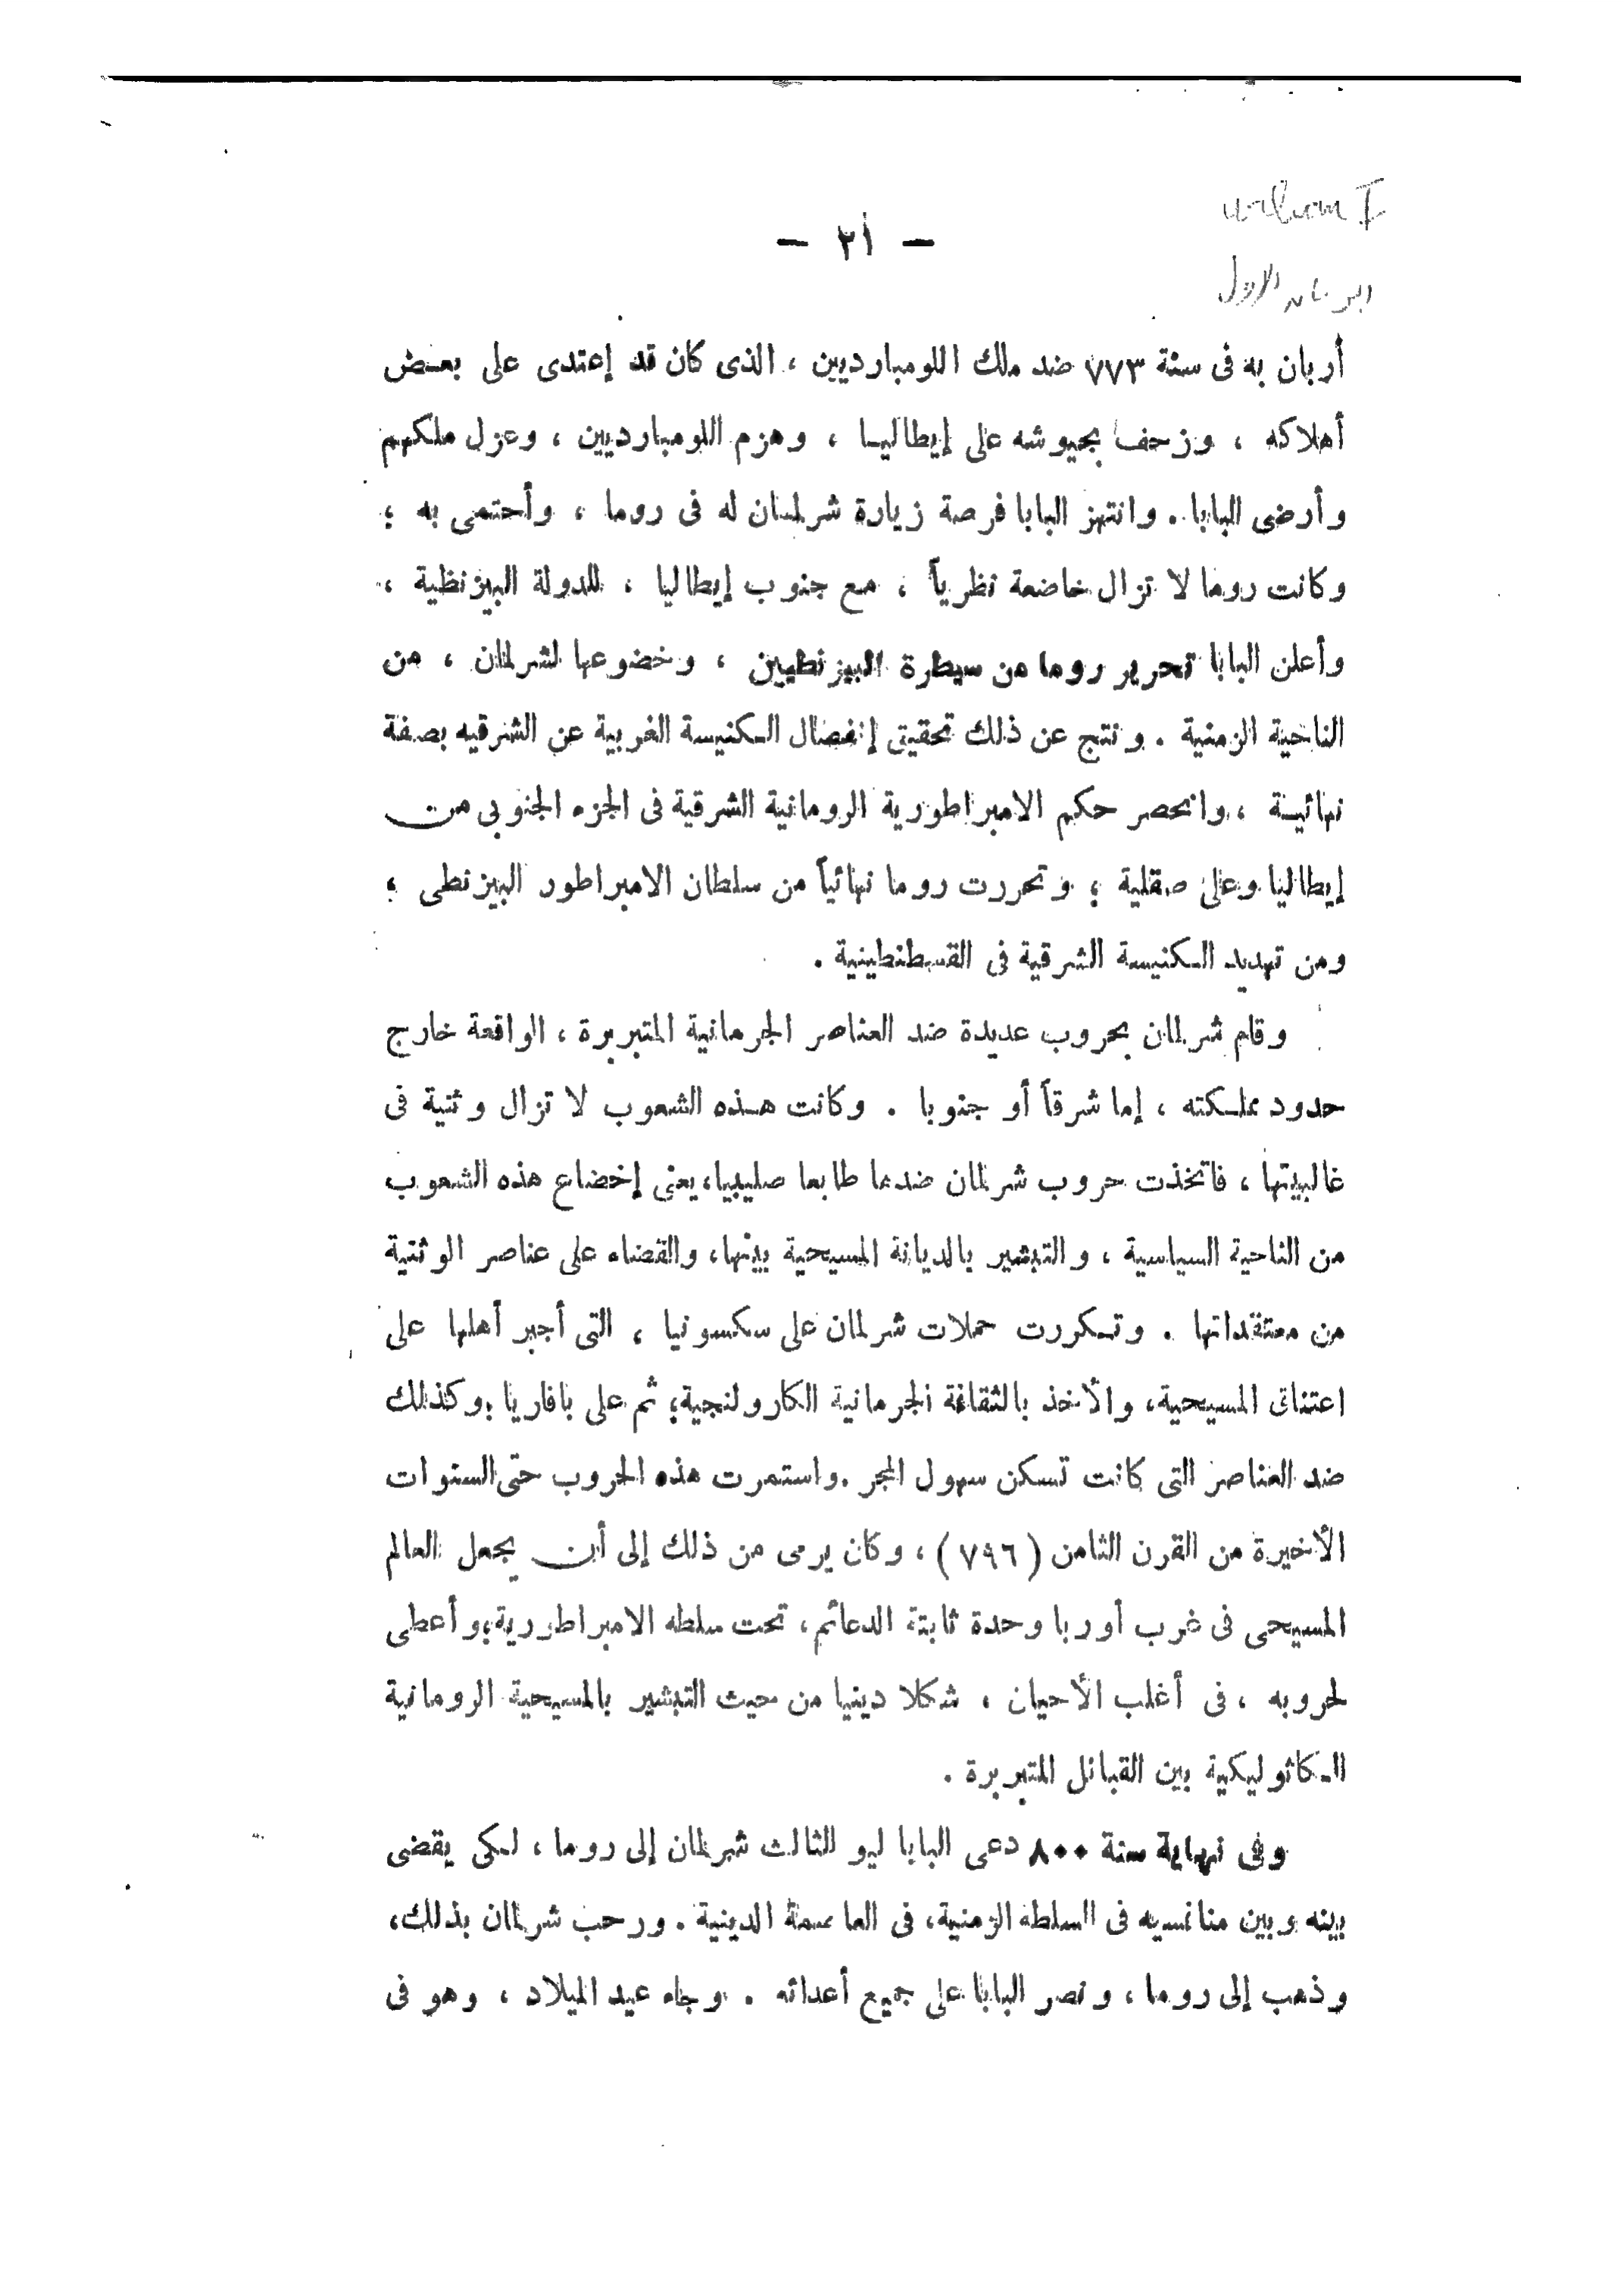 — ٢١ —
أربان به فى سنة ٧٧٣ ضد ملك اللومبارديين ، الذى كان قد إعتدى على بعض
أملاكه ، وزحف بجيوشه على إيطاليا ، وهزم اللومبارديين ، وعزل ملكهم
وأرضى البابا . وانتهز البابا فرصة زيارة شرلمان له فى روما ، وأحتمى به ؛
وكانت روما لا تزال خاضعة نظرياً ، مع جنوب إيطاليا ، للدولة البيزنظية ،
وأعلن البابا تحرير روما من سيطرة البيزنطيين ، وخضوعها لشرلمان ، من
الناحية الزمنية . ونتج عن ذلك تحقيق إنفصال الكنيسة الغربية عن الشرقيه بصفة
نهائية ، وانحصر حكم الامبراطورية الرومانية الشرقية فى الجزء الجنوبى من
إيطاليا وعلى صقلية ؛ وتحررت روما نهائياً من سلطان الامبراطور البيزنطى ؛
ومن تهديد الكنيسة الشرقية فى القسطنطينية .
وقام شرلمان بحروب عديدة ضد العناصر الجرمانية المتبربرة ، الواقعة خارج
حدود مملكته ، إما شرقاً أو جنوبا . وكانت هذه الشعوب لا تزال وثنية فى
غالبيتها ، فاتخذت حروب شرلمان ضدها طابعا صليبيا، يعنى إخضاع هذه الشعوب
من الناحية السياسية ، والتبشير بالديانة المسيحية بينها، والقضاء على عناصر الوثنية
من معتقداتها . وتكررت حملات شرلمان على سكسونيا ، التى أجبر أهلها على
اعتناق المسيحية، والأخذ بالثقافة الجرمانية الكارولنجية؛ ثم على بافاريا ؛ وكذلك
ضد العناصر التى كانت تسكن سهول المجر . واستمرت هذه الحروب حتى السنوات
الأخيرة من القرن الثامن ( ٧٩٦ ) ، وكان يرمى من ذلك إلى أن يجعل العالم
المسيحى فى غرب أوربا وحدة ثابتة الدعائم، تحت سلطه الامبراطورية؛ وأعطى
لحروبه ، فى أغلب الأحيان ، شكلا دينيا من حيث التبشير بالمسيحية الرومانية
الكاثوليكية بين القبائل المتبربرة .
وفى نهاية سنة ٨٠٠ دعى البابا ليو الثالث شرلمان إلى روما ، لكى يقضى
بينه وبين منافسيه فى السلطه الزمنية، فى العاصمة الدينية . ورحب شرلمان بذلك،
وذهب إلى روما ، ونصر البابا على جميع أعدائه . وجاء عيد الميلاد ، وهو فى